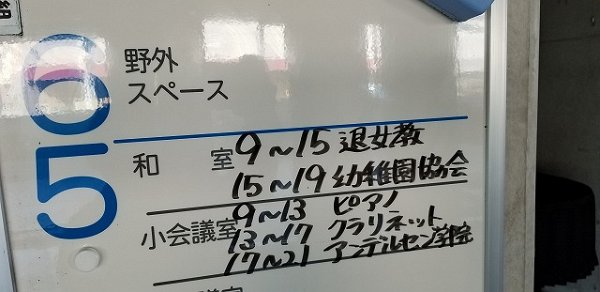 6 野外
スペース
5 和室 9～15 退女教
15～19 幼稚園協会
小会議室 9～13 ピアノ
13～17 クラリネット
17～21 アンデルセン学院